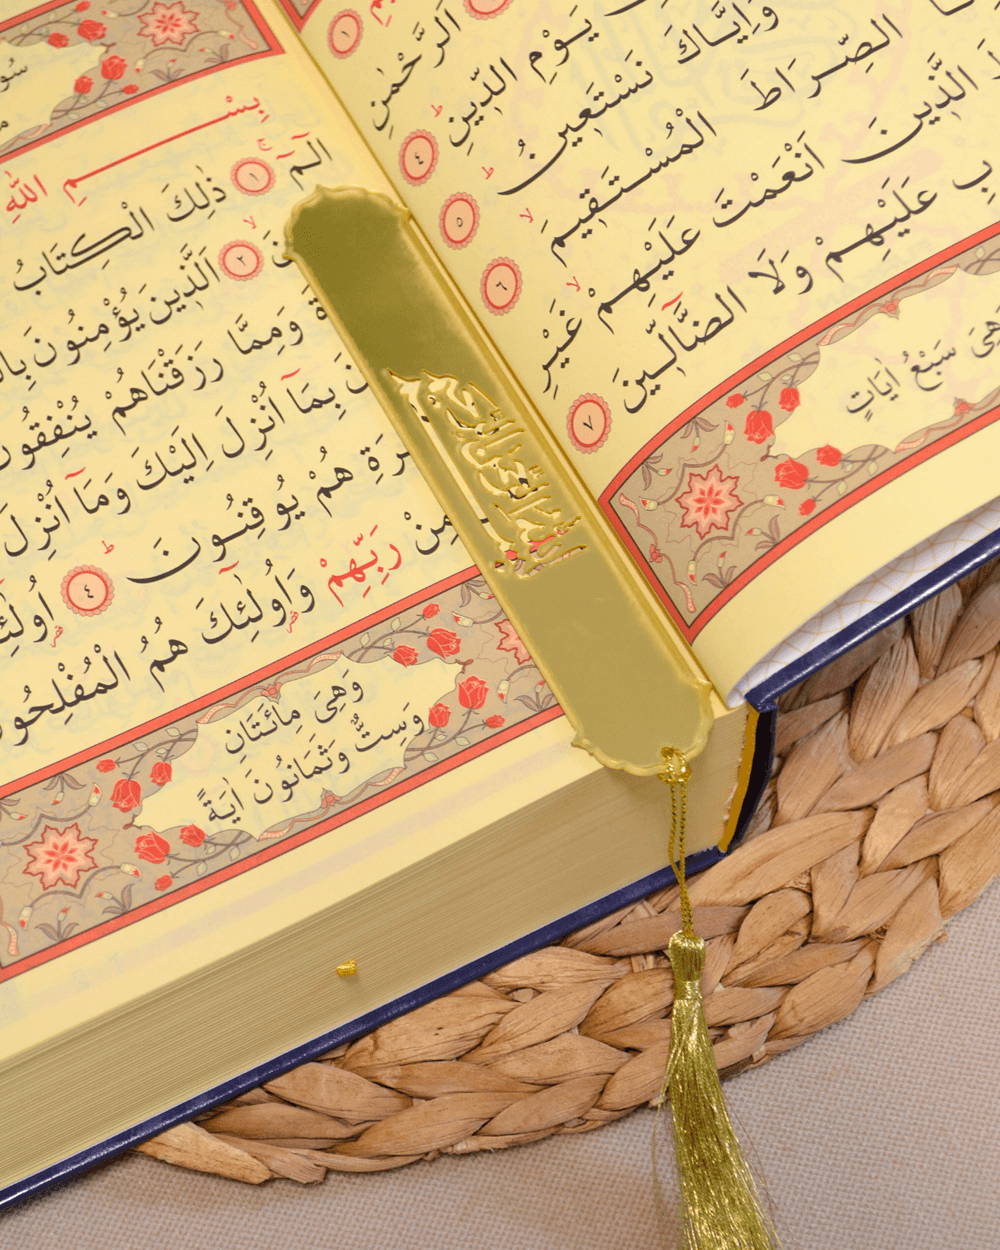 ١
الرَّحْمٰنِ
يَوْمِ الدّ۪ينِ ٤
وَاِيَّاكَ نَسْتَع۪ينُ ٥
الصِّرَاطَ الْمُسْتَق۪يمَ ٦
الَّذ۪ينَ اَنْعَمْتَ عَلَيْهِمْ غَيْرِ
عَلَيْهِمْ وَلَا الضَّٓالّ۪ينَ ٧
وَهِىَ سَبْعُ اٰيَاتٍ
بِسْــــــمِ اللّٰهِ
الٓمٓ ١ ذٰلِكَ الْكِتَابُ
٢ اَلَّذ۪ينَ يُؤْمِنُونَ
وَمِمَّا رَزَقْنَاهُمْ يُنْفِقُونَ
بِمَٓا اُنْزِلَ اِلَيْكَ وَمَٓا اُنْزِلَ
هُمْ يُوقِنُونَ ٤
مِنْ رَبِّهِمْ وَاُو۬لٰٓئِكَ هُمُ الْمُفْلِحُونَ
وَهِىَ مِائَتَانِ
وَسِتٌّ وَثَمَانُونَ اٰيَةً
بسم الله الرحمن الرحيم